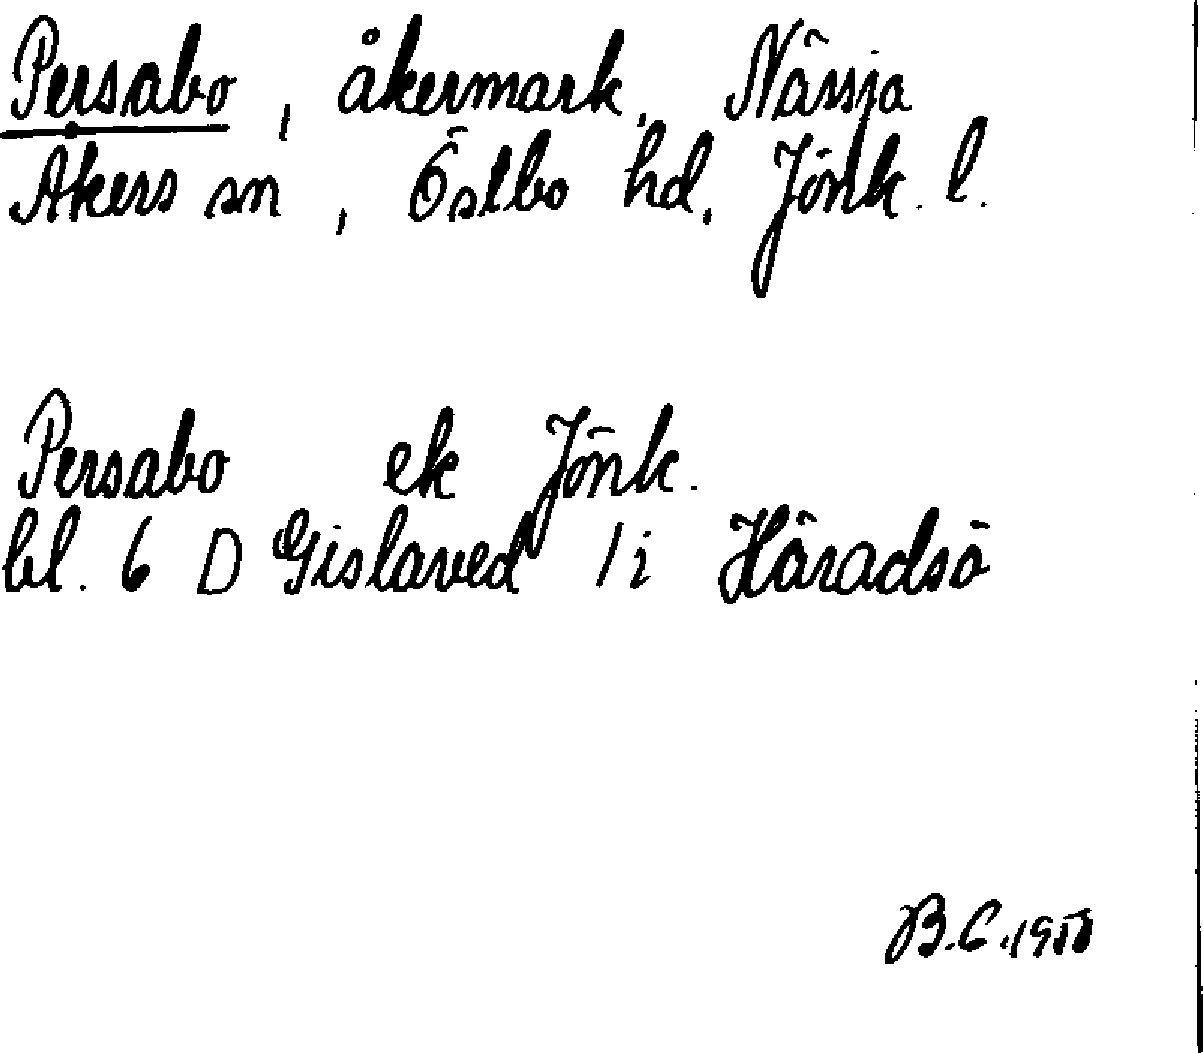 Persabo, åkermark, Nässja
Åkers sn, Östbo hd, Jönk. l.
Persabo ek Jönk.
bl. 6 D Gislaved 1i Häradsö
B.C. 1950